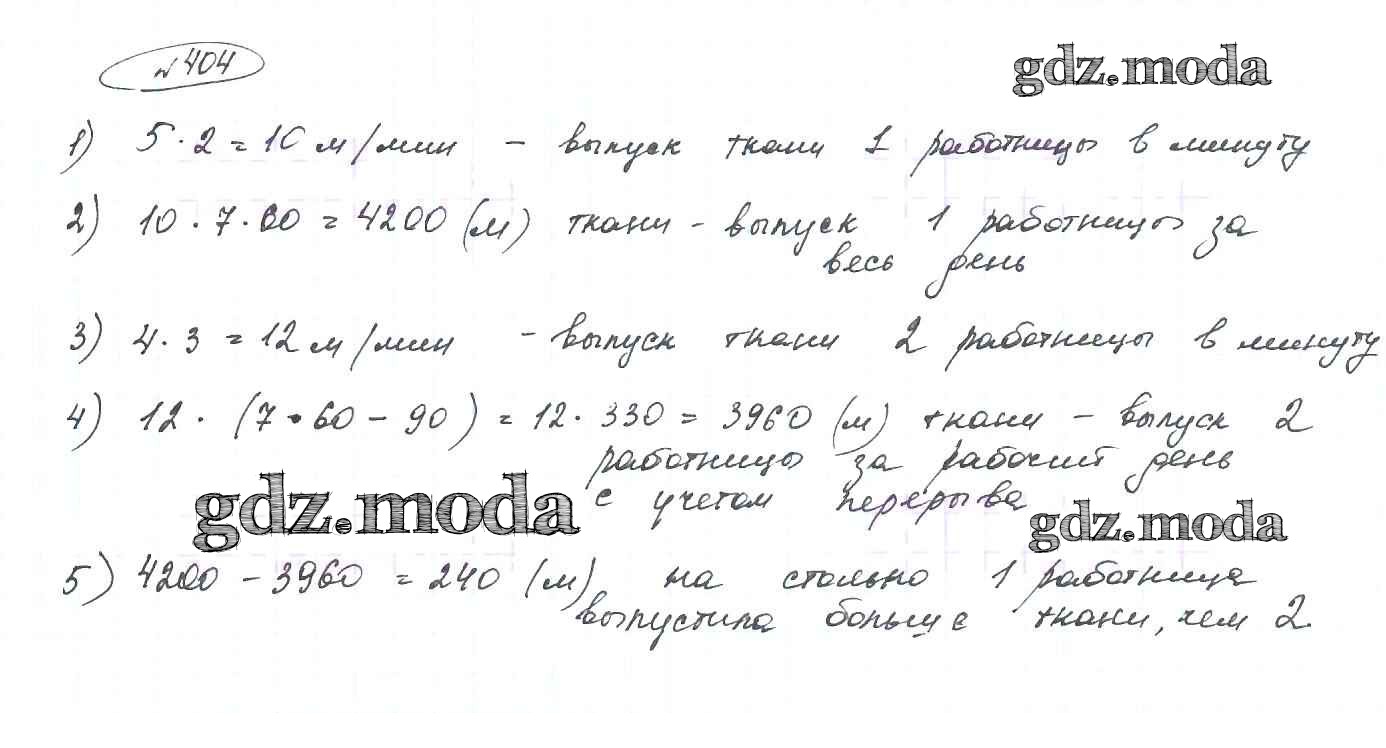 № 404
gdz.moda
1) 5 · 2 = 10 м/мин – выпуск ткани 1 работницы в минуту
2) 10 · 7 · 60 = 4200 (м) ткани – выпуск 1 работницы за
весь день
3) 4 · 3 = 12 м/мин – выпуск ткани 2 работницы в минуту
4) 12 · (7 · 60 – 90) = 12 · 330 = 3960 (м) ткани – выпуск 2
работницы за рабочий день
gdz.moda
с учетом перерыва
gdz.moda
5) 4200 – 3960 = 240 (м) на столько 1 работница
выпустила больше ткани, чем 2.